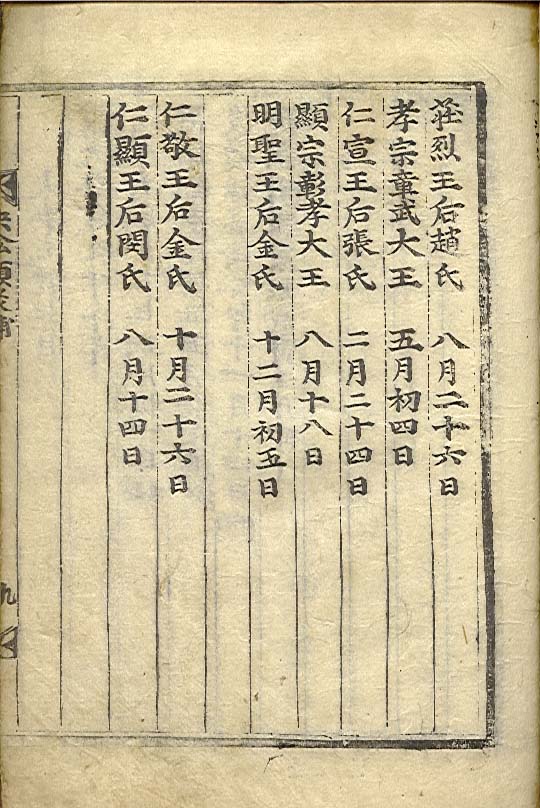 莊烈王后趙氏 八月二十六日
孝宗章武大王 五月初四日
仁宣王后張氏 二月二十四日
顯宗彰孝大王 八月十八日
明聖王后金氏 十二月初五日
仁敬王后金氏 十月二十六日
仁顯王后閔氏 八月十四日
九